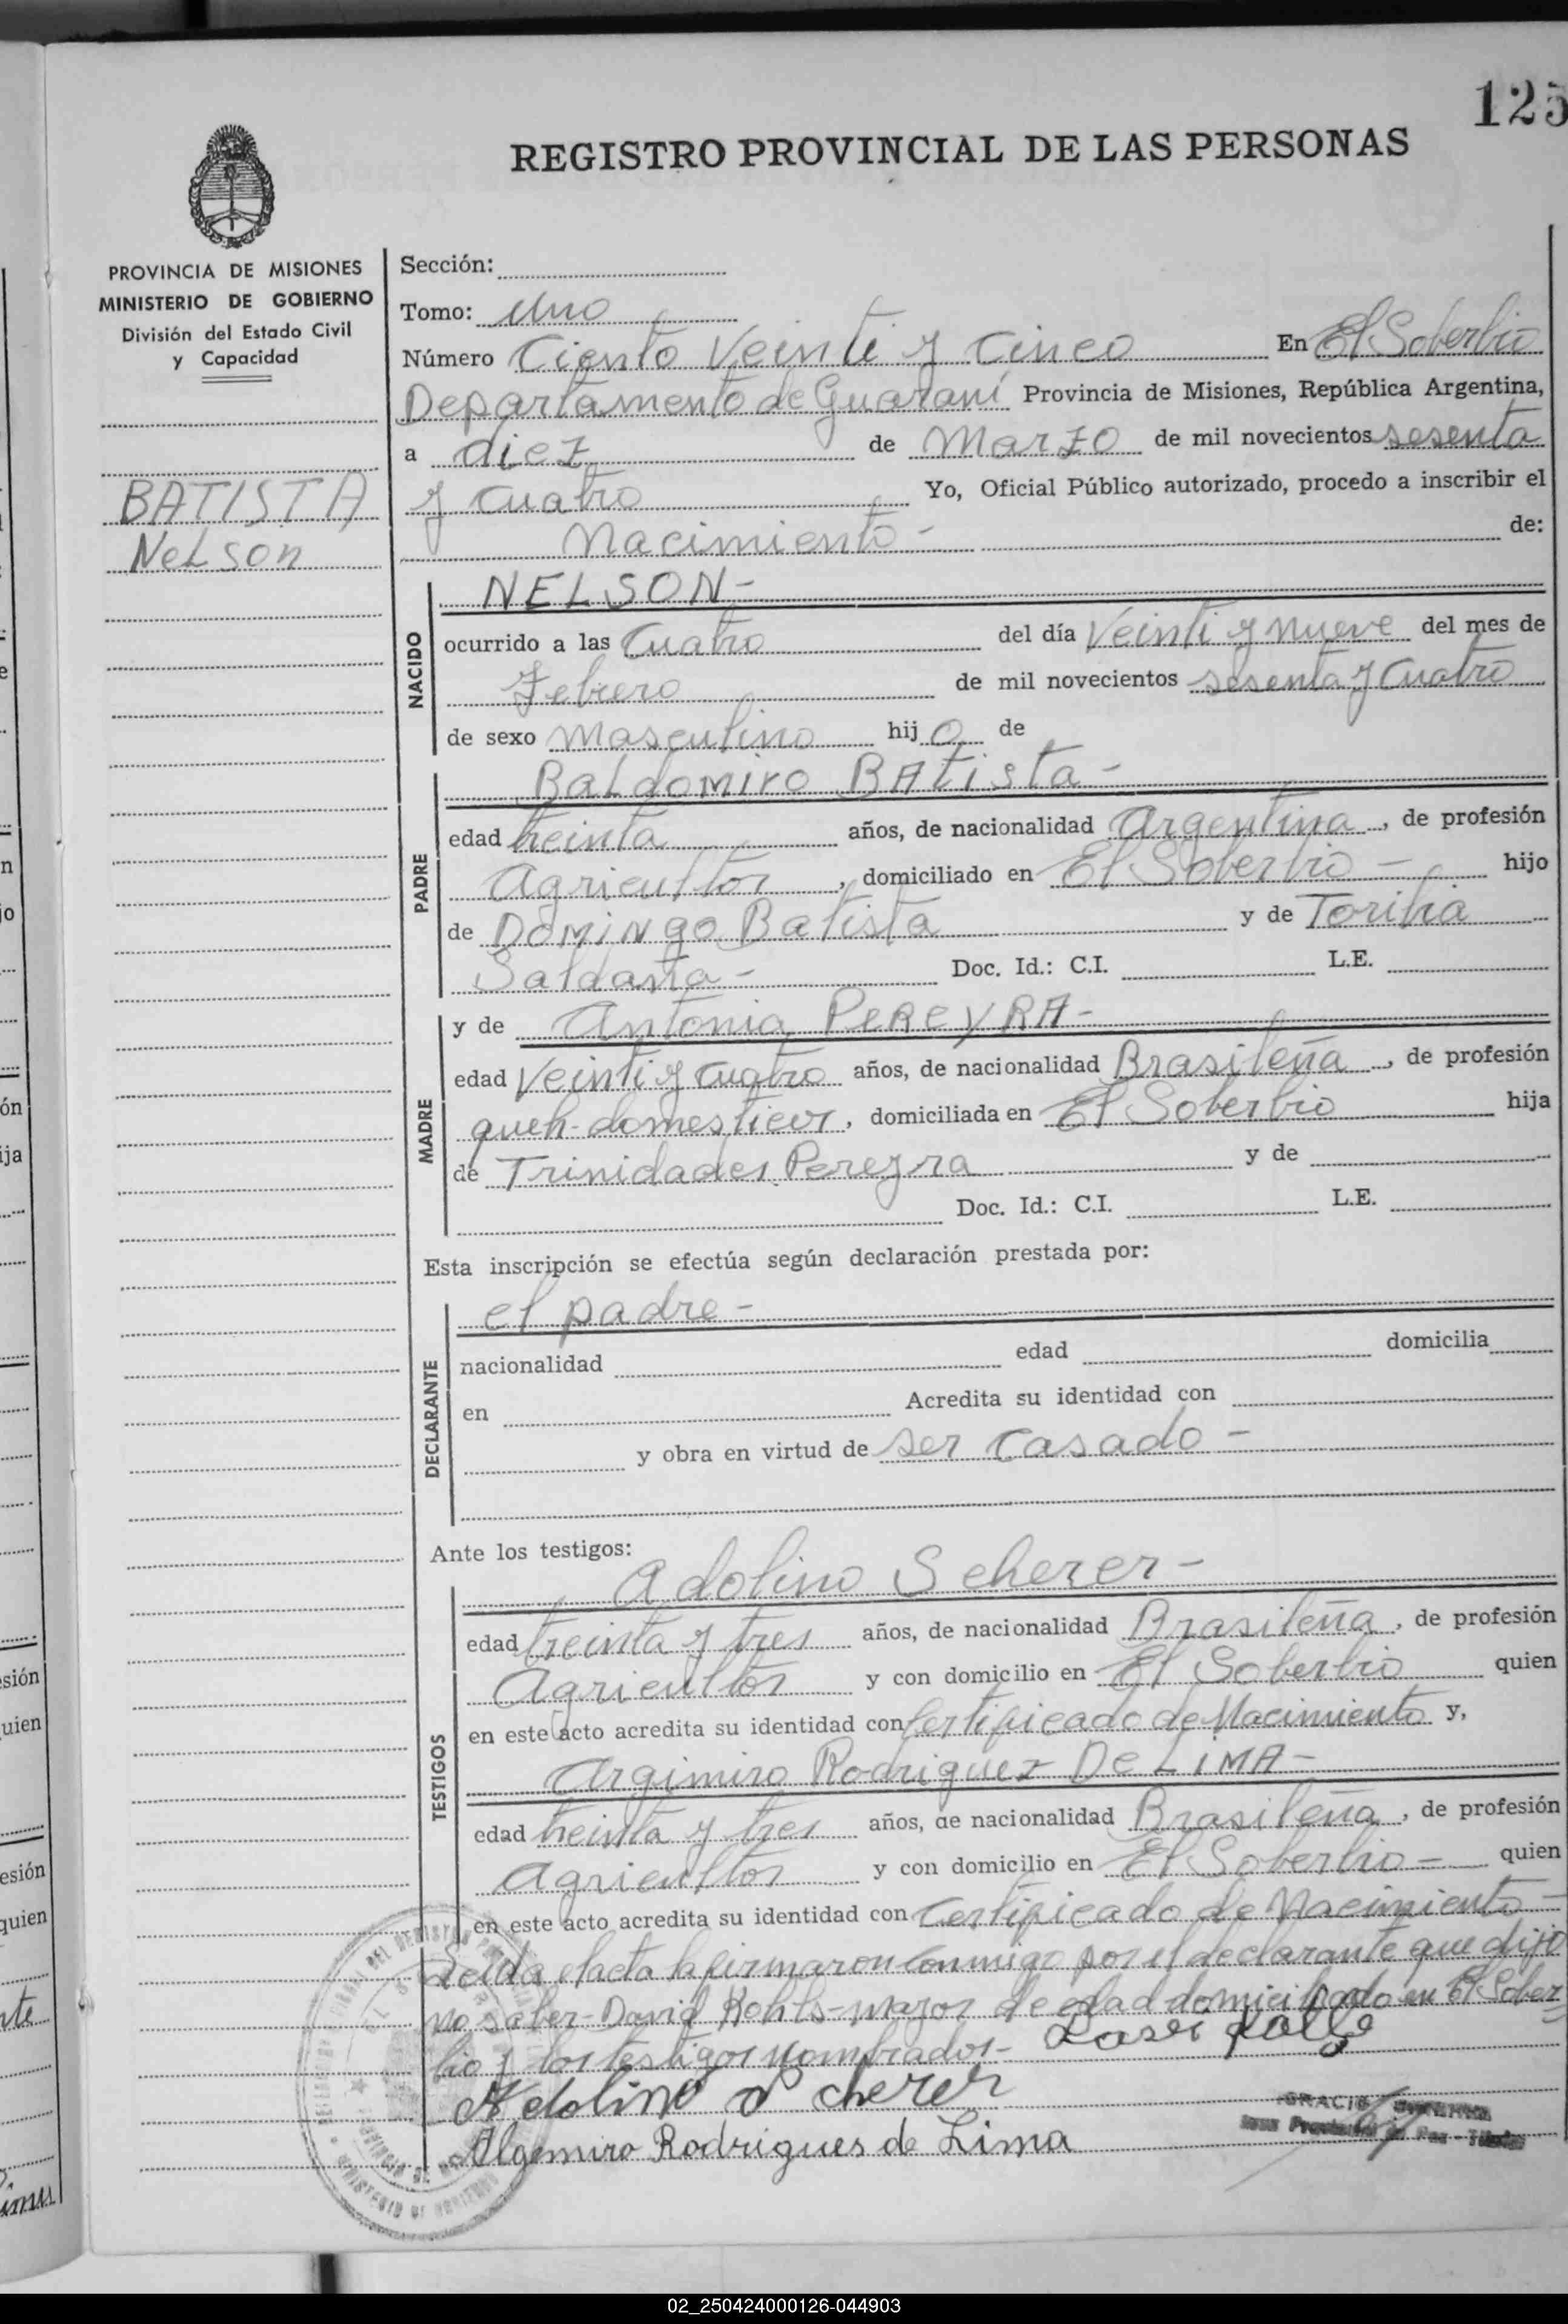 125
REGISTRO PROVINCIAL DE LAS PERSONAS
PROVINCIA DE MISIONES
MINISTERIO DE GOBIERNO
División del Estado Civil
y Capacidad
BATISTA
Nelson
Sección:
Tomo: Uno
Número Ciento Veinti y Cinco En El Soberbio
Departamento de Guaraní Provincia de Misiones, República Argentina,
a diez de Marzo de mil novecientos sesenta
y cuatro Yo, Oficial Público autorizado, procedo a inscribir el
Nacimiento - de:
NACIDO
NELSON-
ocurrido a las Cuatro del día Veinti y nueve del mes de
Febrero de mil novecientos sesenta y Cuatro
de sexo Masculino hij o de
PADRE
Baldomiro BAtista -
edad treinta años, de nacionalidad Argentina, de profesión
Agricultor, domiciliado en El Soberbio - hijo
de Domingo Batista y de Toribia
Saldaña - Doc. Id.: C.I. L.E.
MADRE
y de Antonia PEREYRA-
edad Veinti y Cuatro años, de nacionalidad Brasileña, de profesión
queh-domesticos, domiciliada en El Soberbio hija
de Trinidades Pereyra y de
Doc. Id.: C.I. L.E.
Esta inscripción se efectúa según declaración prestada por:
DECLARANTE
el padre -
nacionalidad edad domicilia
en Acredita su identidad con
y obra en virtud de ser casado -
Ante los testigos:
TESTIGOS
Adolino Scherer -
edad treinta y tres años, de nacionalidad Brasileña, de profesión
Agricultor y con domicilio en El Soberbio quien
en este acto acredita su identidad con Certificado de Nacimiento y,
Argimiro Rodriguez De LIMA-
edad treinta y tres años, de nacionalidad Brasileña, de profesión
Agricultor y con domicilio en El Soberbio - quien
en este acto acredita su identidad con Certificado de Nacimiento -
Leida el acta la firmaron conmigo por el declarante que dijo
no saber - David Kohls - mayor de edad domiciliado en El Sober
bio y los testigos nombrados -
Adolino Scherer
Algemiro Rodrigues de Lima
02_250424000126-044903